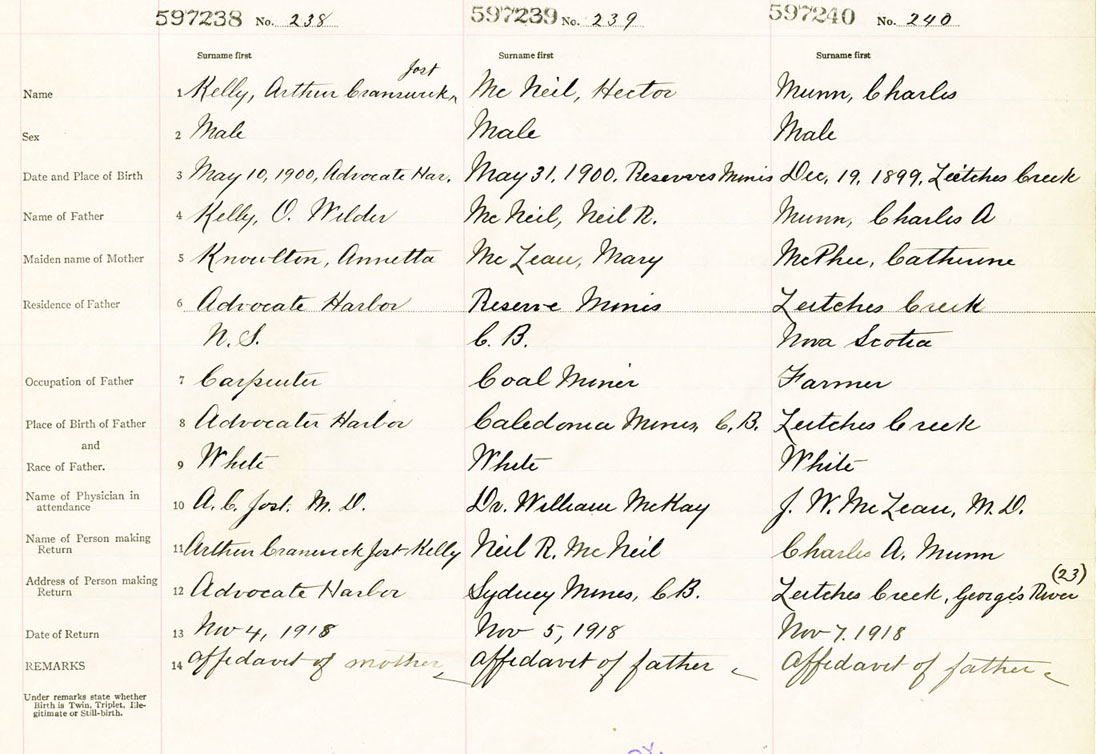 597238 No. 238 597239 No. 239 597240 No. 240
Surname first Surname first Surname first
Jost
Name 1 Kelly, Arthur Cranswick Mc Neil, Hector Munn, Charles
Sex 2 Male Male Male
Date and Place of Birth 3 May 10, 1900, Advocate Har. May 31, 1900. Reserves Mines Dec. 19, 1899, Leitches Creek
Name of Father 4 Kelly, O. Wilder Mc Neil, Neil R. Munn, Charles A
Maiden name of Mother 5 Knowlton, Annetta Mc Lean, Mary McPhee, Catherine
Residence of Father 6 Advocate Harbor Reserve Mines Leitches Creek
N. S. C. B. Nova Scotia
Occupation of Father 7 Carpenter Coal Miner Farmer
Place of Birth of Father 8 Advocater Harbor Caledonia Mines, C.B. Leitches Creek
and
Race of Father. 9 White White White
Name of Physician in
attendance 10 A. C. Jost. M. D. Dr. William McKay J. W. McLean, M.D.
Name of Person making
Return 11 Arthur Cranwick Jost Kelly Neil R. McNeil Charles A. Munn
(23)
Address of Person making
Return 12 Advocate Harbor Sydney Mines, C.B. Leitches Creek, Georges River
Date of Return 13 Nov 4, 1918 Nov 5, 1918 Nov 7. 1918
REMARKS 14 affidavit of mother affidavit of father affidavit of father
Under remarks state whether
Birth is Twin, Triplet, Ille-
gitimate or Still-birth.